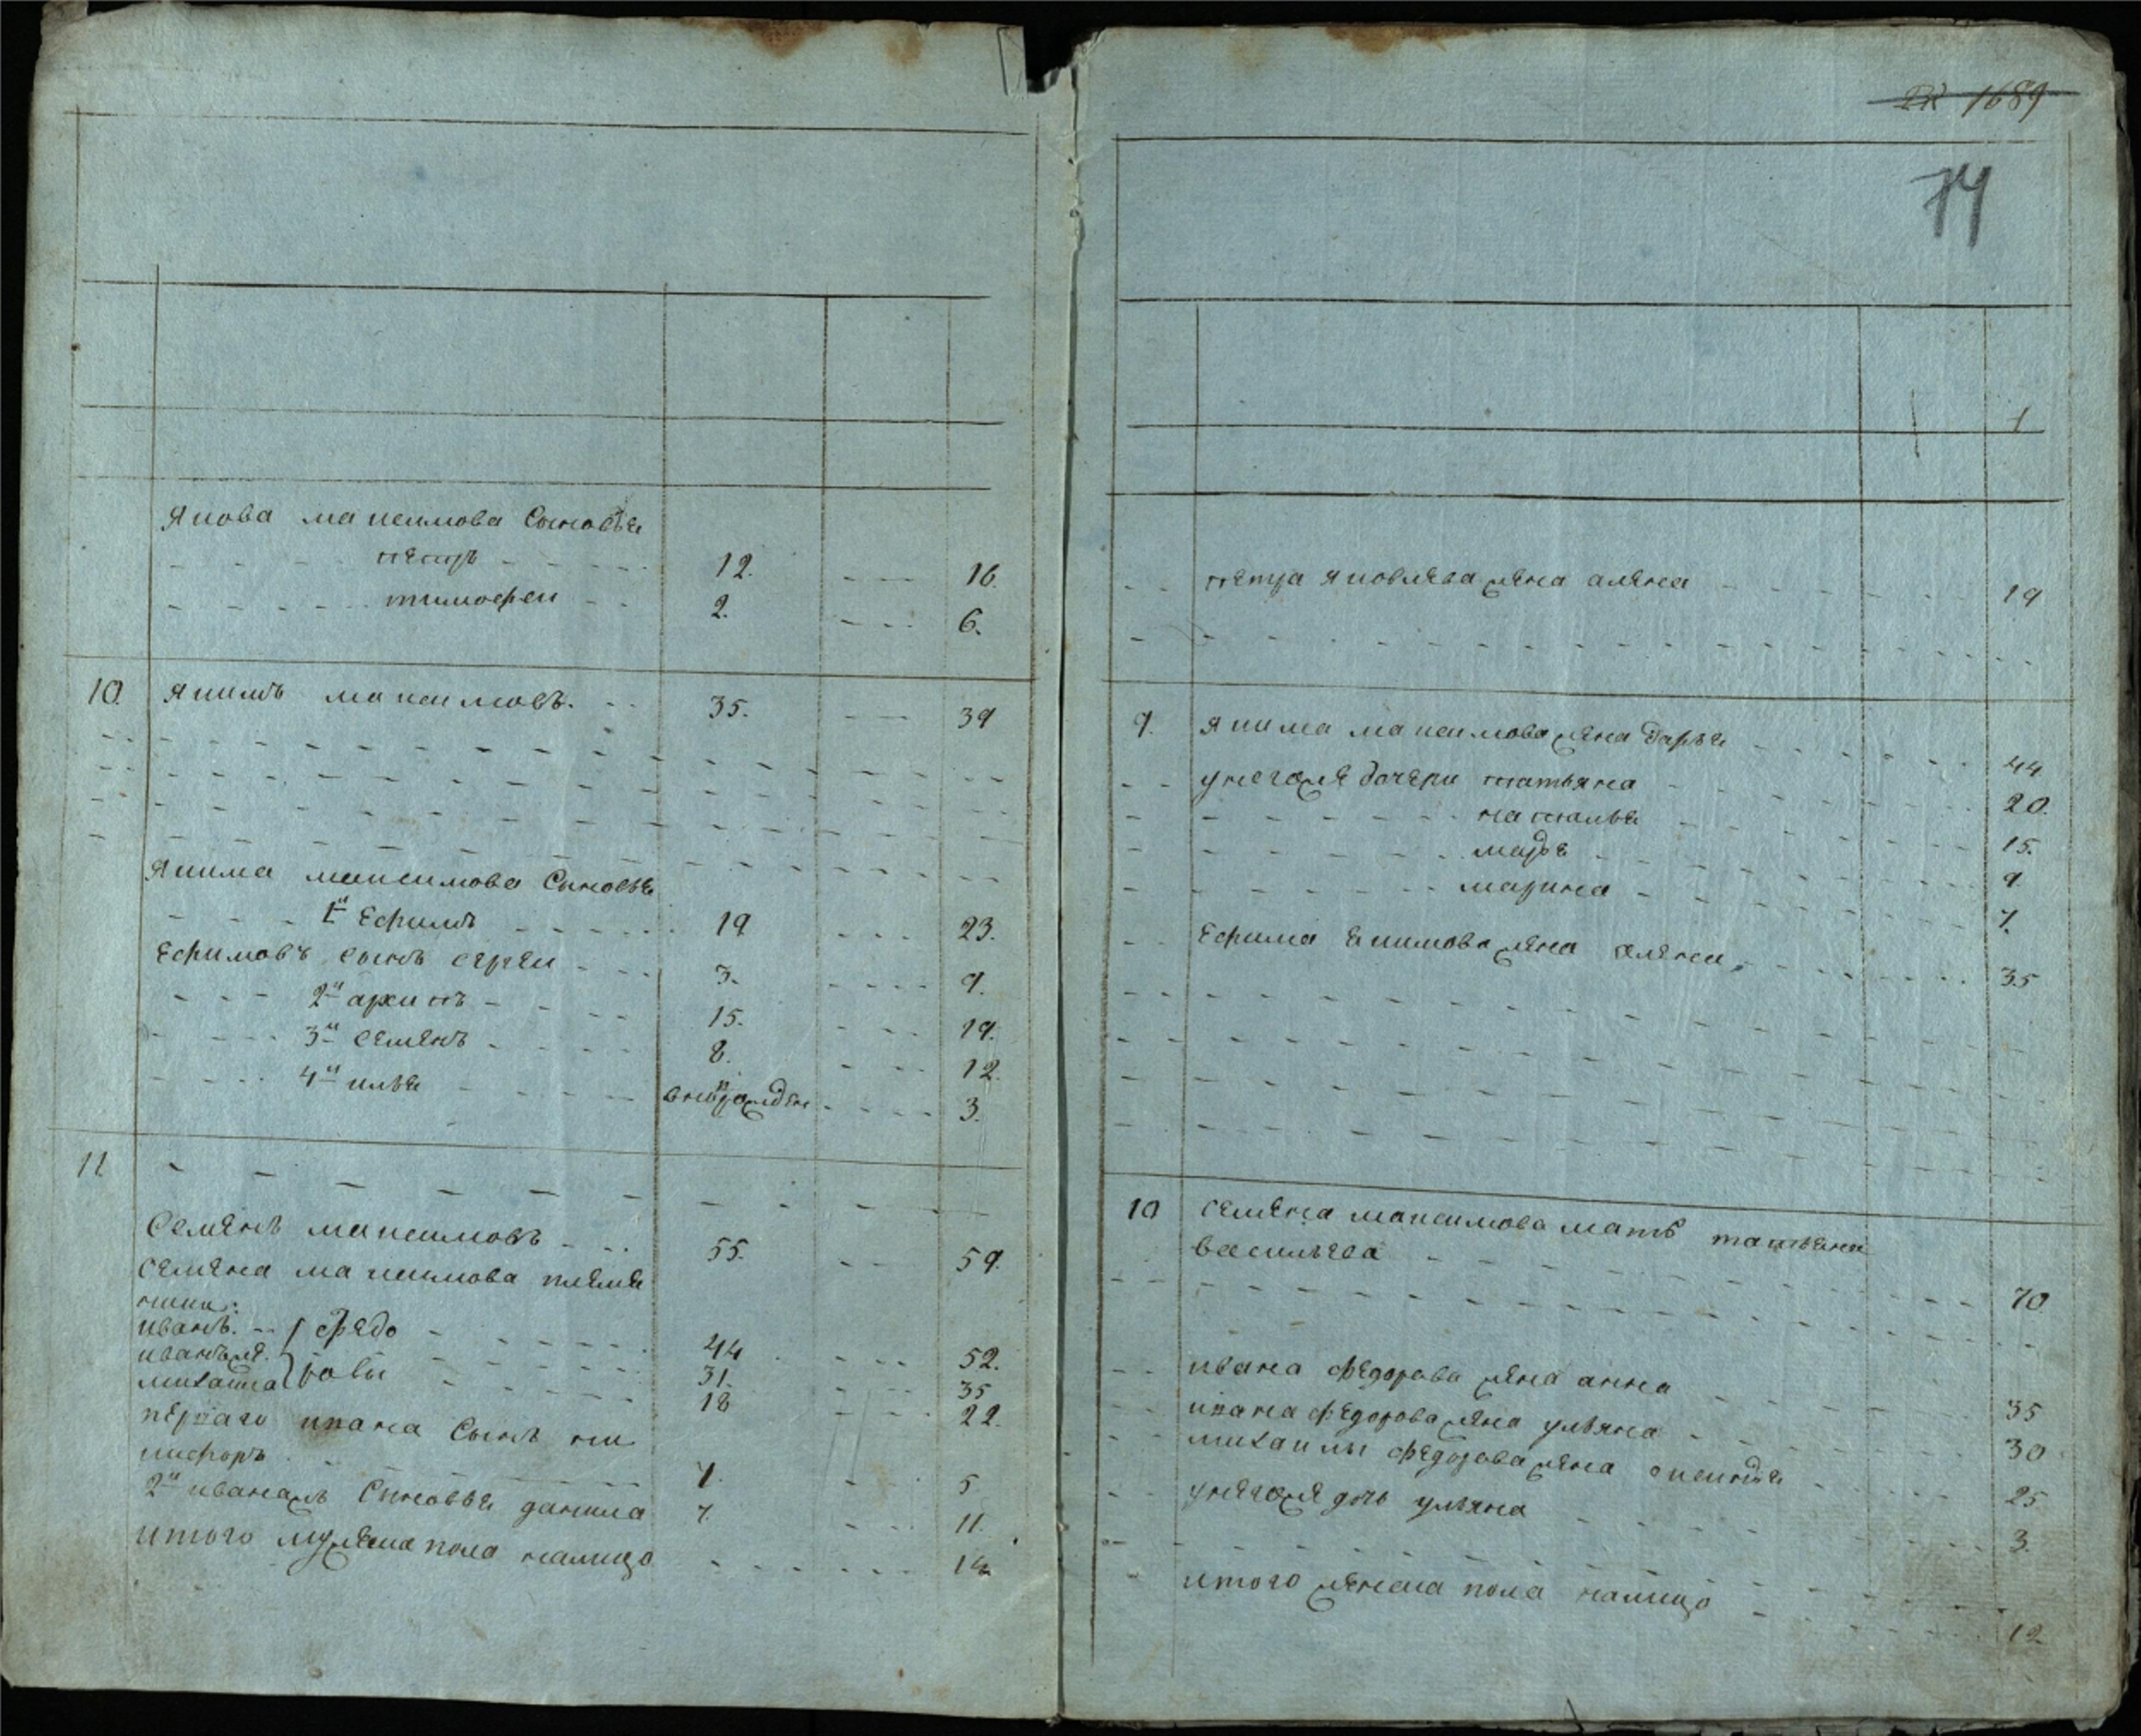 Якова максимова Сыновья
петръ 12. 16.
тимофеи 2. 6.
10. Якимъ максимовъ. 35. 39
Якима максимова Сыновья
1й Ефимъ 19 23.
Ефимовъ сынъ сергеи 3. 9.
2й архипъ 15. 19.
3й семенъ 8. 12.
4й илья внов рожден 3.
11
Семенъ максимовъ 55. 59.
семена максимова племя
ники:
иванъ. федо 44 52.
иванъ же. ровы 31. 35
михаила 18 22.
перваго ивана Сынъ ни
кифоръ 1. 5
2й иванажъ Сыновья данила 7. 11.
итого мужеска пола налицо 14
1689
74
1
петра яковлева жена алена 19
9. Якима максимова жена дарья 44
у него же дочери татьяна 20.
наталья 15.
марфа 9.
марина 7.
Ефима якимова жена алена 35
10 семена максимова мать татьяна
васильева 70.
ивана федорова жена анна 35
ивана федорова жена ульяна 30
михаилы федорова жена аксинья 25
у него же дочь ульяна 3.
итого женска пола налицо 12